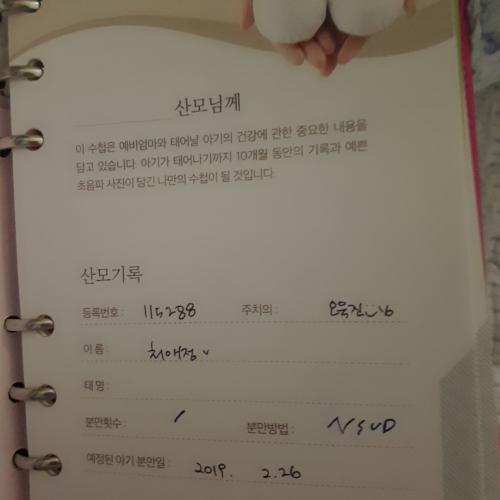 산모님께
이 수첩은 예비엄마와 태어날 아기의 건강에 관한 중요한 내용을
담고 있습니다. 아기가 태어나기까지 10개월 동안의 기록과 예쁜
초음파 사진이 담긴 나만의 수첩이 될 것입니다.
산모기록
등록번호 : 115288 주치의 :
이 름 : 최애정
태 명 :
분만횟수 : / 분만방법 : NSVD
예정된 아기 분만일 : 2019. 2.26